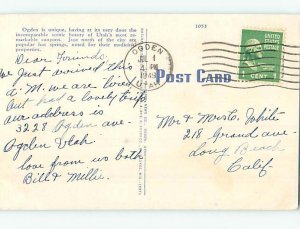 Ogden is unique, having at its very door the
incomparable scenic beauty of Utah's most re-
markable canyons. Just north of the city are
popular hot springs, noted for their medicinal
properties.
1053
OGDEN
JUL
PM
1949
UTAH
POST CARD
1 CENT 1
Dear Friends
We Just arrived this
A. M. we are fine
and had a lovely trip
our address is
3228 Ogden ave.
Ogden Utah.
love from us both
Bill & Mellie.
Mr & Mrs C. White
218 Grand ave
Long Beach
Calif.